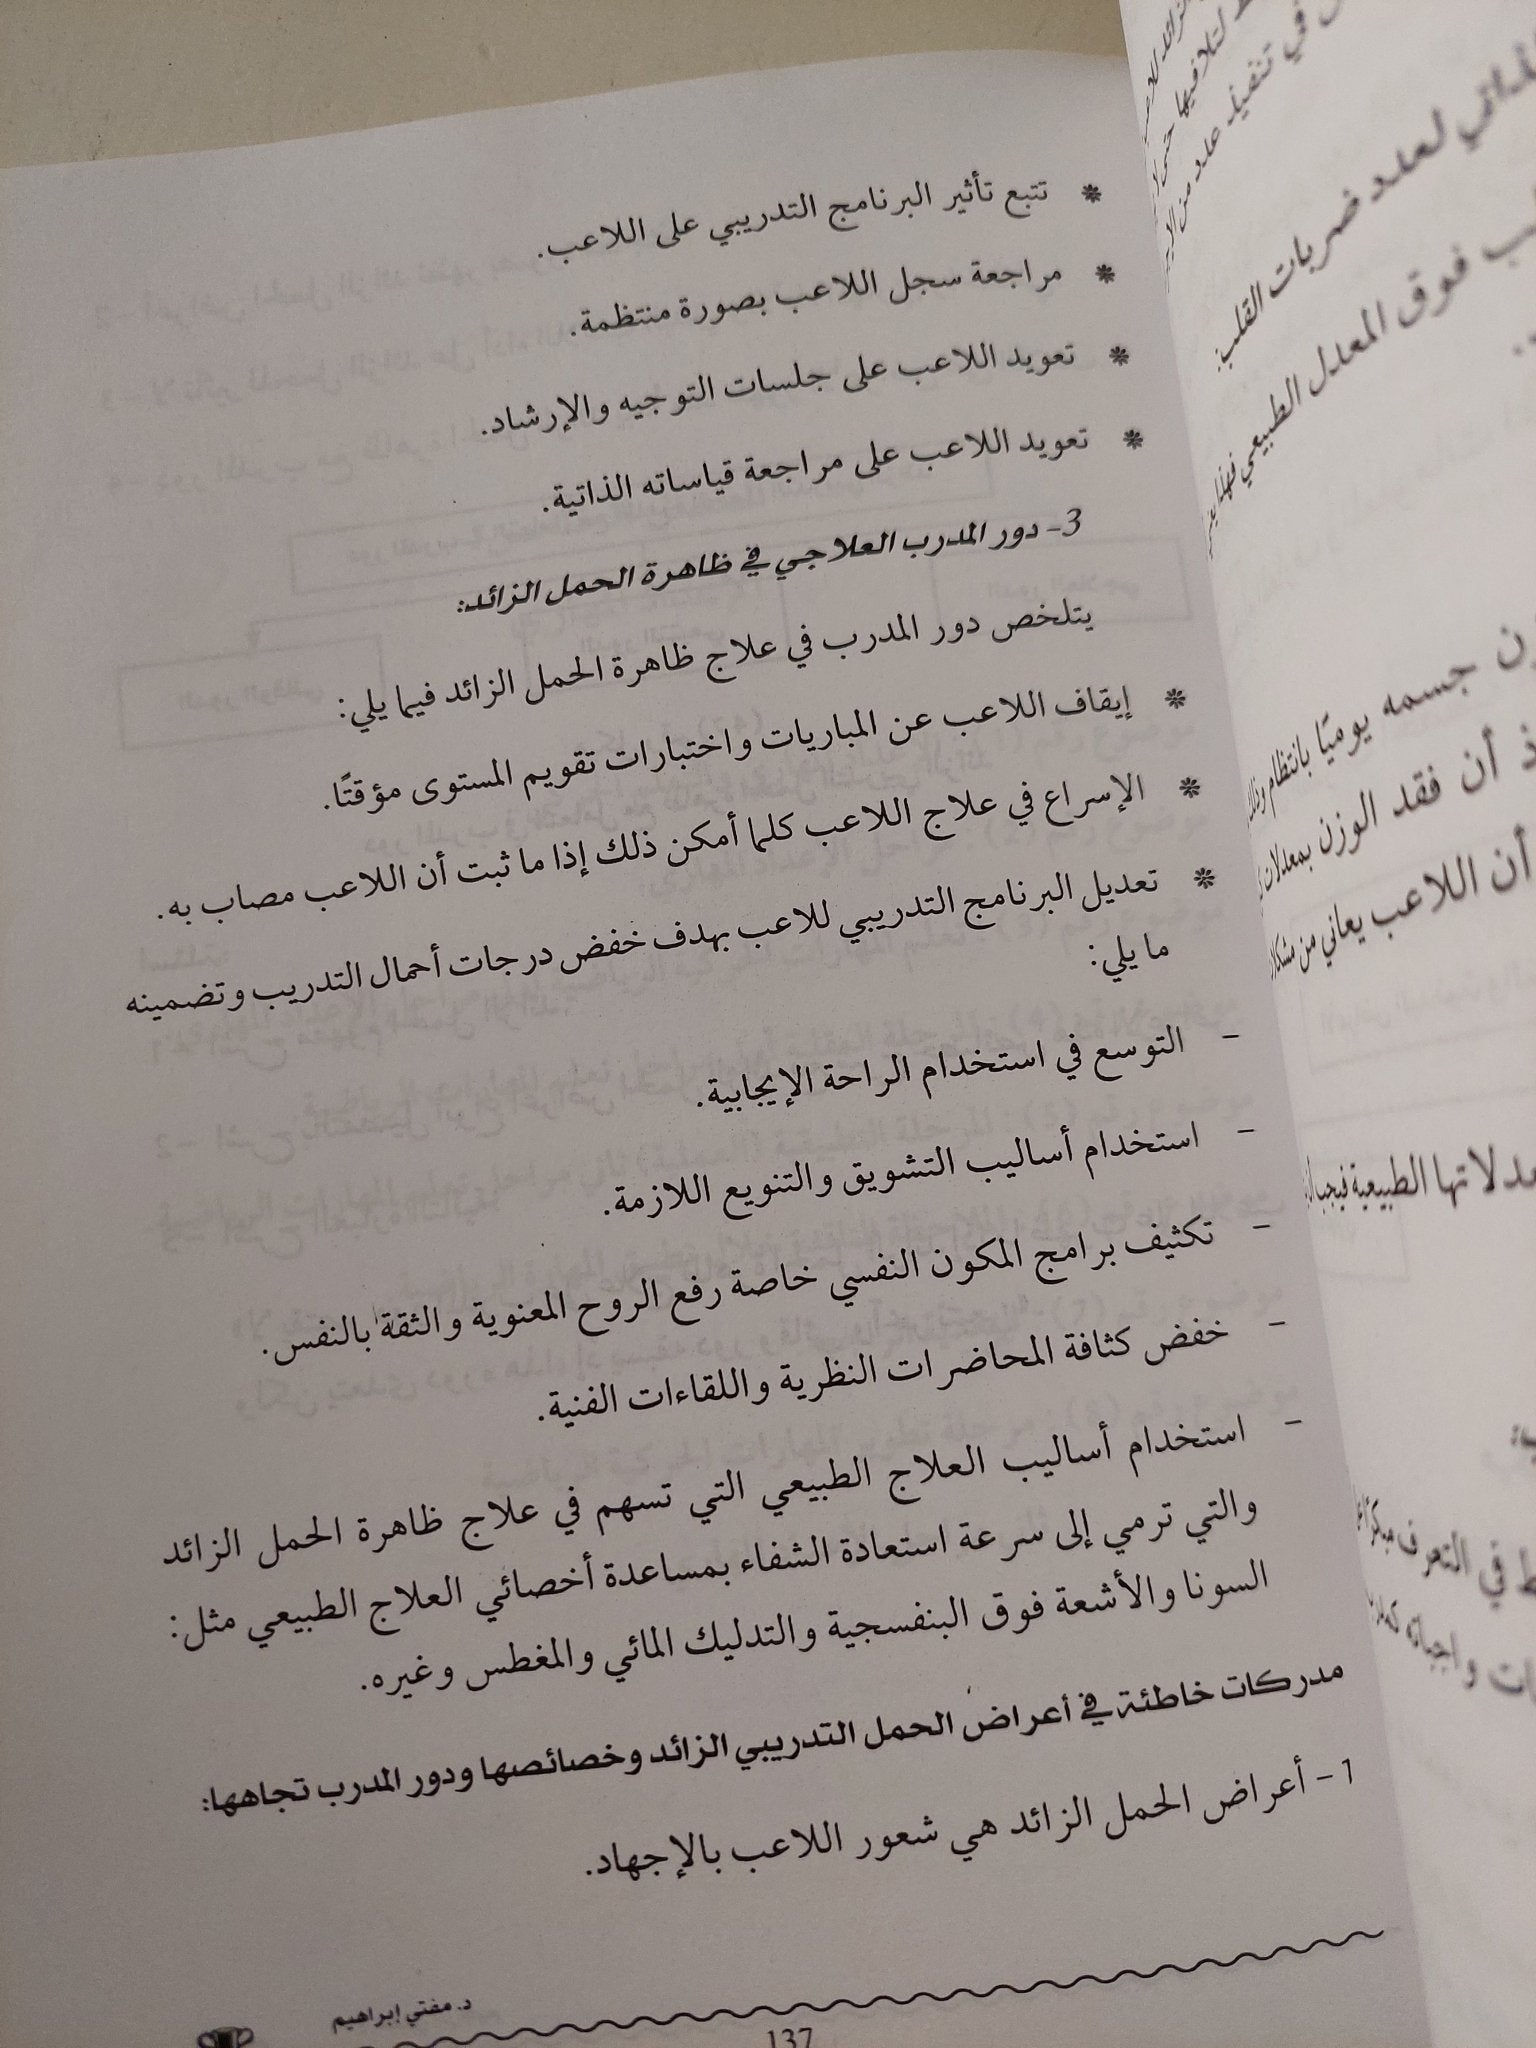 * تتبع تأثير البرنامج التدريبي على اللاعب.
* مراجعة سجل اللاعب بصورة منتظمة.
* تعويد اللاعب على جلسات التوجيه والإرشاد.
* تعويد اللاعب على مراجعة قياساته الذاتية.
3- دور المدرب العلاجي في ظاهرة الحمل الزائد:
يتلخص دور المدرب في علاج ظاهرة الحمل الزائد فيما يلي:
* إيقاف اللاعب عن المباريات واختبارات تقويم المستوى مؤقتًا.
* الإسراع في علاج اللاعب كلما أمكن ذلك إذا ما ثبت أن اللاعب مصاب به.
* تعديل البرنامج التدريبي للاعب بهدف خفض درجات أحمال التدريب وتضمينه
ما يلي:
- التوسع في استخدام الراحة الإيجابية.
- استخدام أساليب التشويق والتنويع اللازمة.
- تكثيف برامج المكون النفسي خاصة رفع الروح المعنوية والثقة بالنفس.
- خفض كثافة المحاضرات النظرية واللقاءات الفنية.
- استخدام أساليب العلاج الطبيعي التي تسهم في علاج ظاهرة الحمل الزائد
والتي ترمي إلى سرعة استعادة الشفاء بمساعدة أخصائي العلاج الطبيعي مثل:
السونا والأشعة فوق البنفسجية والتدليك المائي والمغطس وغيره.
مدركات خاطئة في أعراض الحمل التدريبي الزائد وخصائصها ودور المدرب تجاهها:
1- أعراض الحمل الزائد هي شعور اللاعب بالإجهاد.
د. مفتي إبراهيم
137
في تنفيذ عدد من
لعدد ضربات القلب:
فوق المعدل الطبيعي
جسمه يوميًا بانتظام
أن فقد الوزن بمعدلات
أن اللاعب يعاني من
الطبيعية فيجب
في التعرف مبكرًا